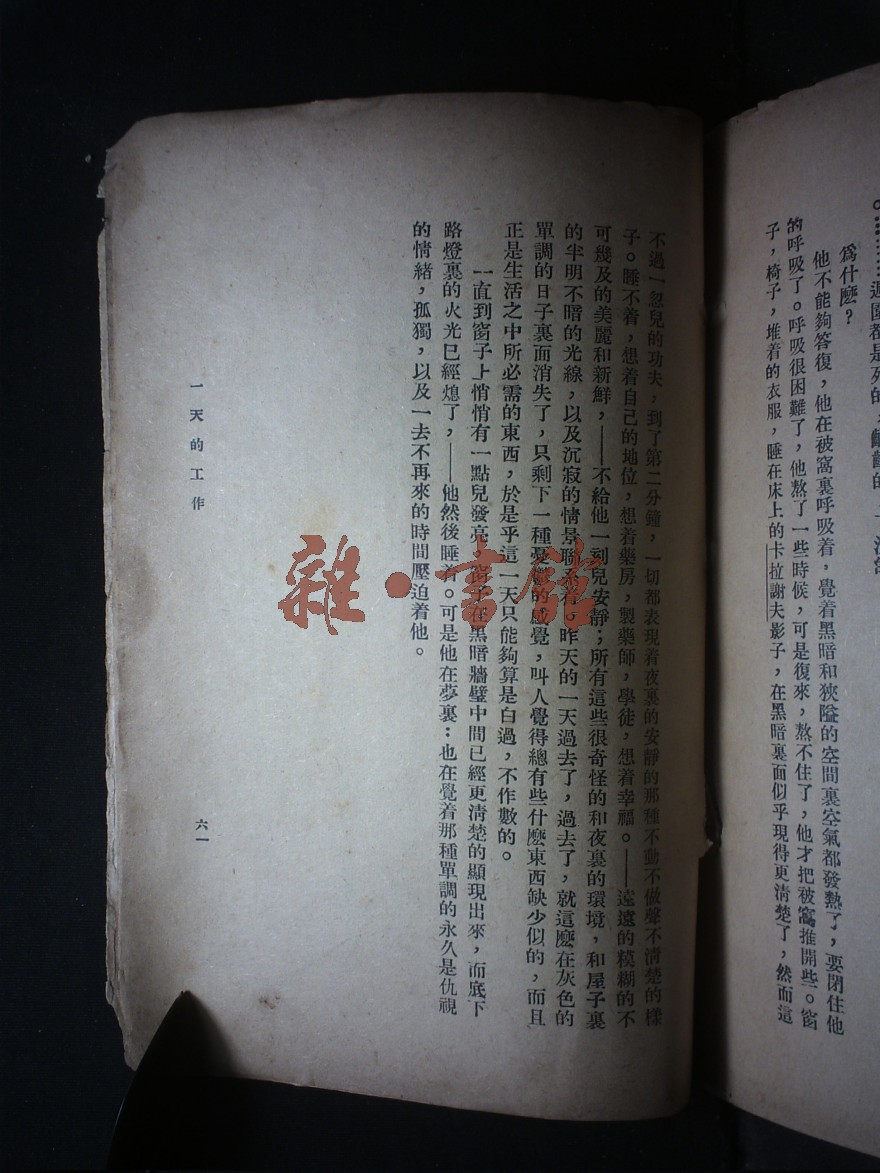 爲什麽？
他不能夠答復，他在被窩裏呼吸着，覺着黑暗和狹隘的空間裏空氣都發熱了，要閉住他
的呼吸了。呼吸很困難了，他熬了一些時候，可是復來，熬不住了，他才把被窩推開些。窗
子，椅子，堆着的衣服，睡在床上的卡拉謝夫影子，在黑暗裏面似乎現得更清楚了，然而這
不過一忽兒的功夫，到了第二分鐘，一切都表現着夜裏的安靜的那種不動不做聲不清楚的樣
子。睡不着，想着自己的地位，想着藥房，製藥師，學徒，想着幸福。——遠遠的模糊的不
可幾及的美麗和新鮮，——不給他一刻兒安靜；所有這些很奇怪的和夜裏的環境，和屋子裏
的半明不暗的光線，以及沉寂的情景聯系着。昨天的一天過去了，過去了，就這麽在灰色的
單調的日子裏面消失了，只剩下一種憂鬱的感覺，叫人覺得總有些什麽東西缺少似的，而且
正是生活之中所必需的東西，於是乎這一天只能夠算是白過，不作數的。
一直到窗子上悄悄有一點兒發亮，窗子在黑暗牆壁中間已經更清楚的顯現出來，而底下
路燈裏的火光已經熄了，——他然後睡着。可是他在夢裏：也在覺着那種單調的永久是仇視
的情緒，孤獨，以及一去不再來的時間壓迫着他。
一天的工作
六一
雜·書館